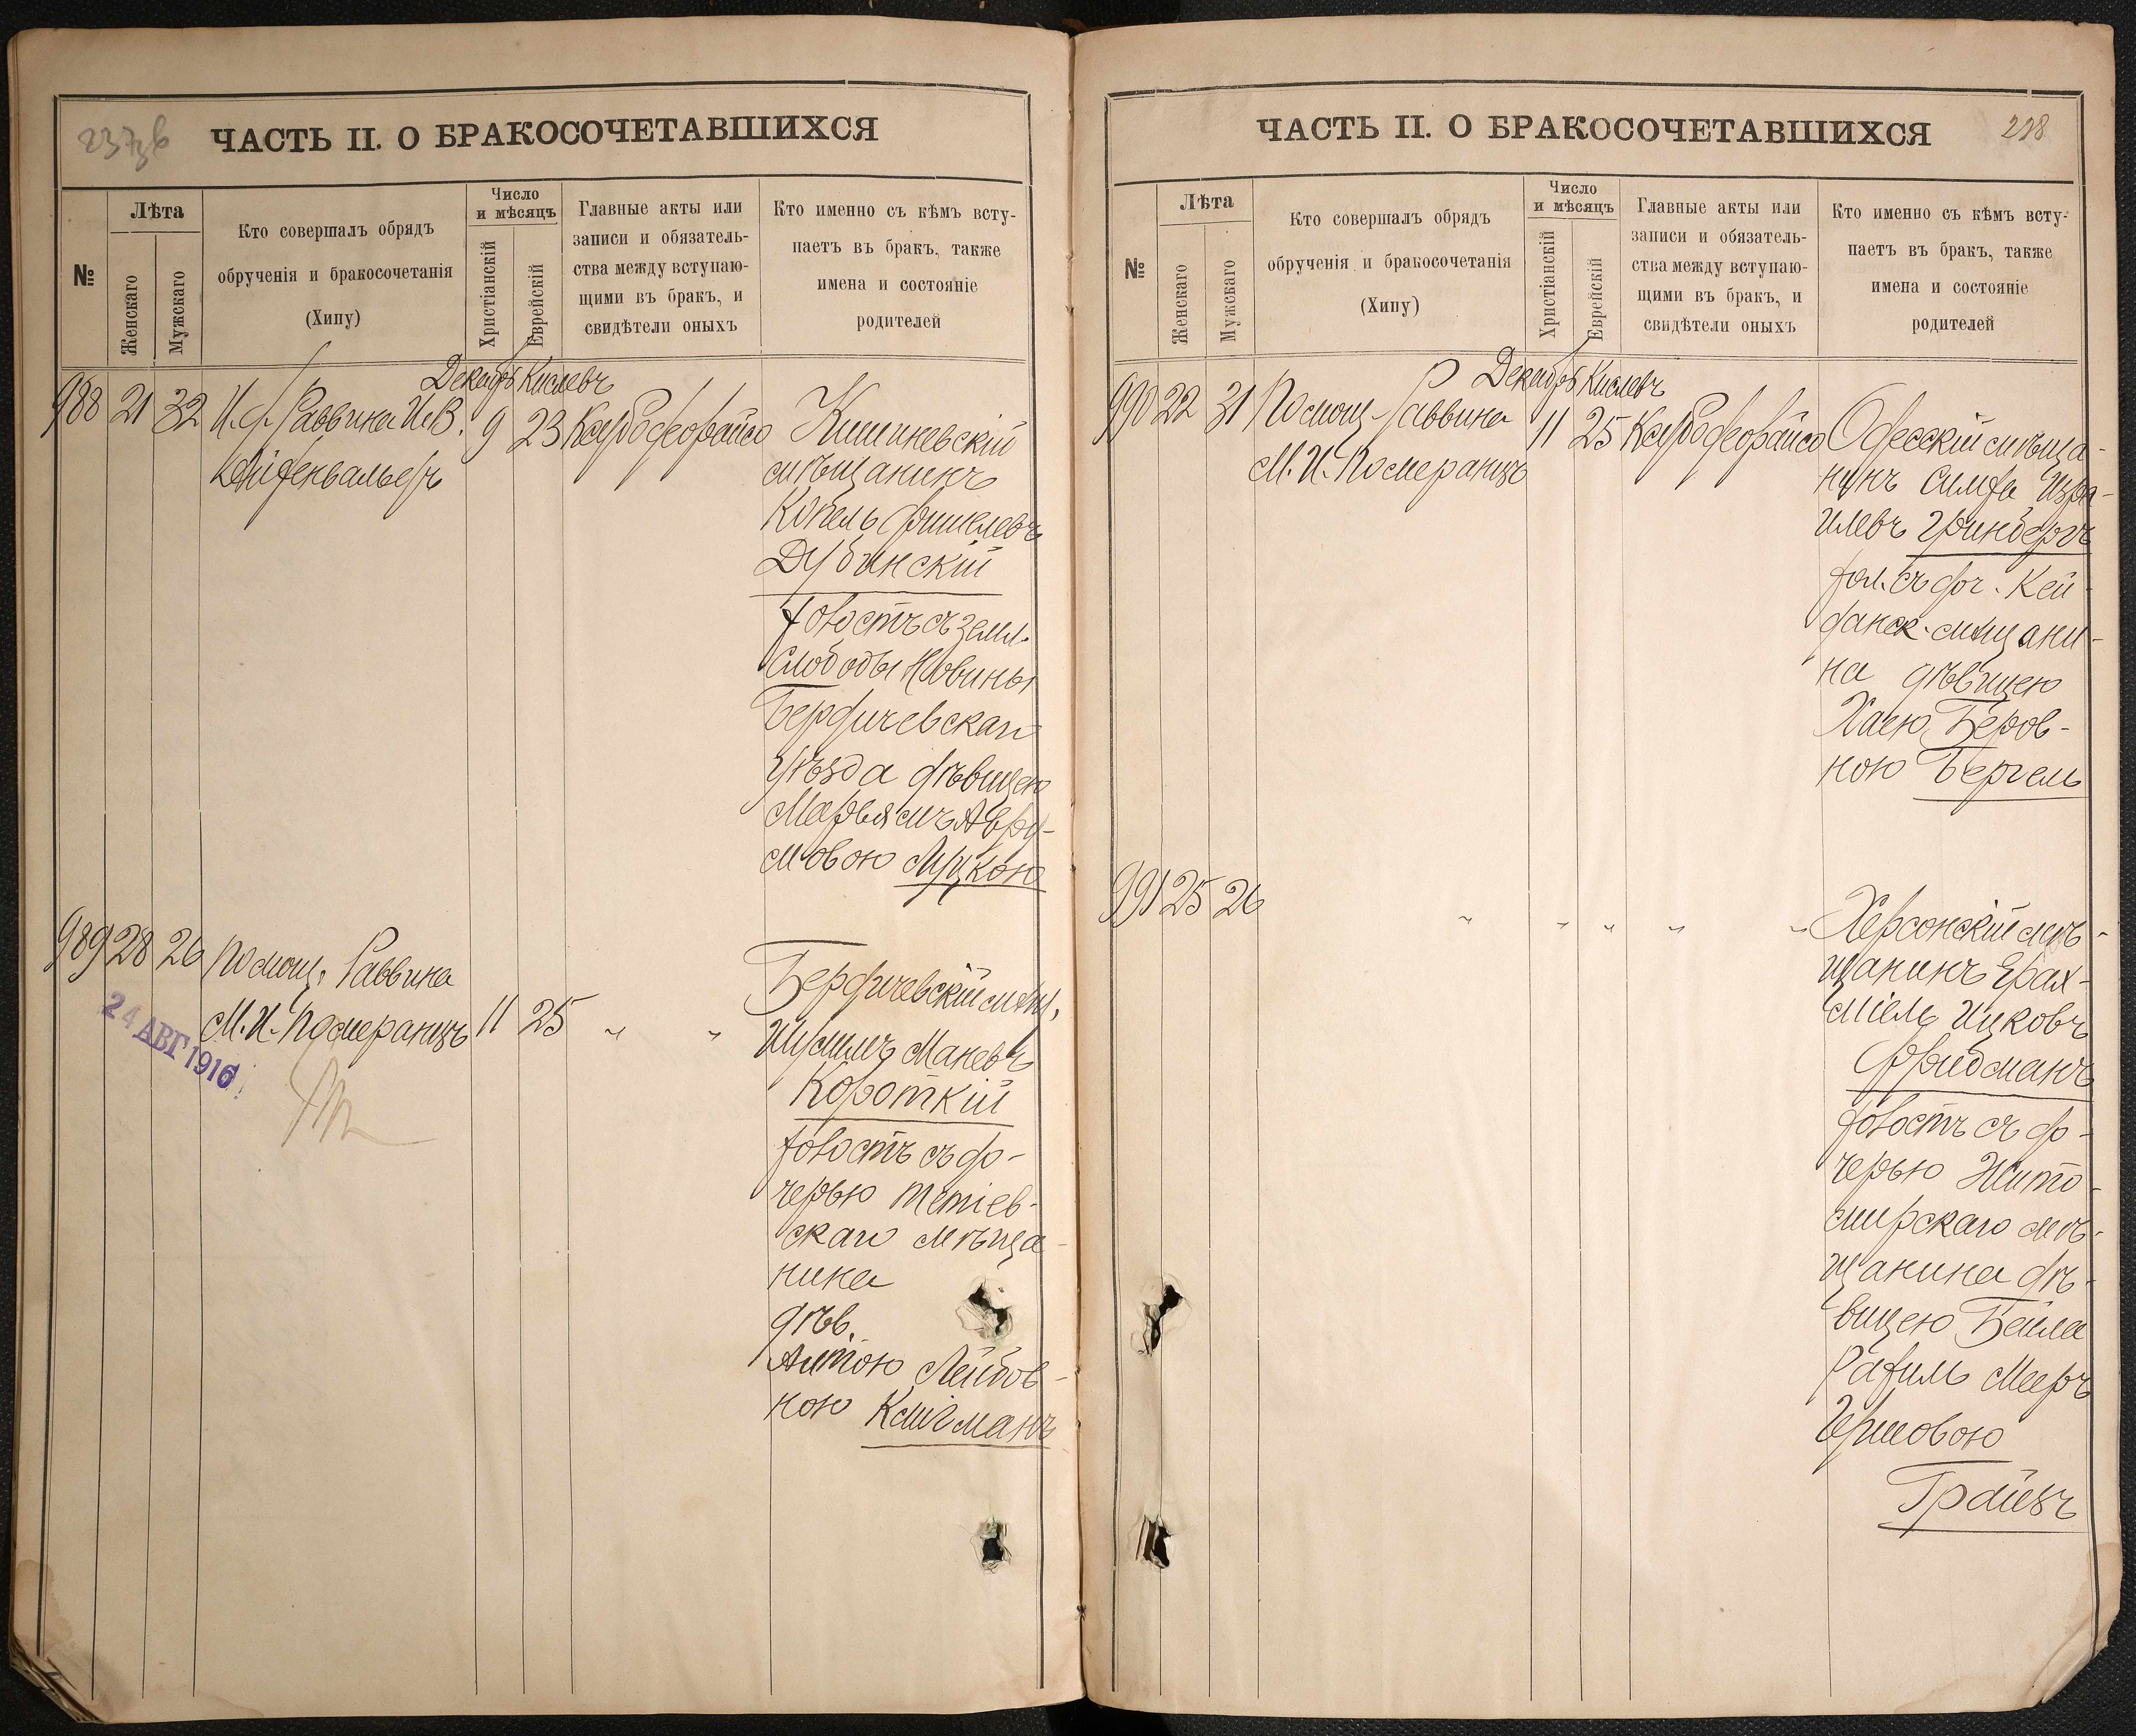 237об
ЧАСТЬ II. О БРАКОСОЧЕТАВШИХСЯ
№
Лѣта
Женскаго
Мужскаго
Кто совершалъ обрядъ
обрученія и бракосочетанія
(Хипу)
Число
и мѣсяцъ
Христіанскій
Еврейскій
Главные акты или
записи и обязатель-
ства между вступаю-
щими въ бракъ, и
свидѣтели оныхъ
Кто именно съ кѣмъ всту-
паетъ въ бракъ, также
имена и состояніе
родителей
Декабрь Кислевъ
988 21 32 И. д. Раввина И.В.
9 23
Кишиневскій
мѣщанинъ
Копель Фишелевъ
Дубинскій
холостъ съ земл.
Слободы Новины
Бердичевскаго
уѣзда дѣвицею
Марьямъ Авру-
мовою Луцкою
989 28 26 Помощ. Раввина
М. И. Померанцъ 11 25 " "
24 АВГ 1916
Бердичевскій мѣщ.
Шумилъ Маневъ
Короткій
холостъ съ до-
черью Тетіев-
скаго мѣща-
нина
дѣв.
Лейбов-
ною
ЧАСТЬ II. О БРАКОСОЧЕТАВШИХСЯ
238
№
Лѣта
Женскаго
Мужскаго
Кто совершалъ обрядъ
обрученія и бракосочетанія
(Хипу)
Число
и мѣсяцъ
Христіанскій
Еврейскій
Главные акты или
записи и обязатель-
ства между вступаю-
щими въ бракъ, и
свидѣтели оныхъ
Кто именно съ кѣмъ всту-
паетъ въ бракъ, также
имена и состояніе
родителей
Декабрь Кислевъ
990 22 31 Помощ. Раввина
М. И. Померанцъ
11 25
Одесскій мѣща-
нинъ Симха Изра-
илевъ Гринбергъ
хол. съ доч. Кей-
данск. мѣщани-
на дѣвицею
Хаею Беров-
ною Бергель
991 25 26 " " " " "
Херсонскій мѣ-
щанинъ Ерах-
міель Ицковъ
Фридманъ
холостъ съ до-
черью Жито-
мирскаго мѣ-
щанина дѣ-
вицею Бейла
Рахиль Мееръ
Гершовою